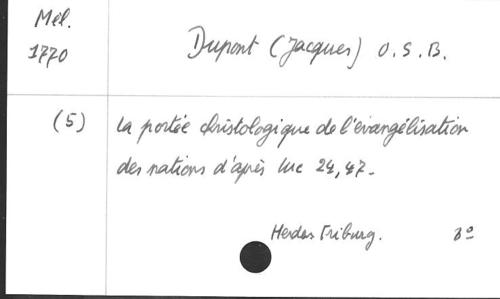 Mel.
1770
Dupont (Jacques) O.S.B.
(5) La portée christologique de l'évangélisation
des nations d'après Luc 24,47.
Herder Friburg. 8º